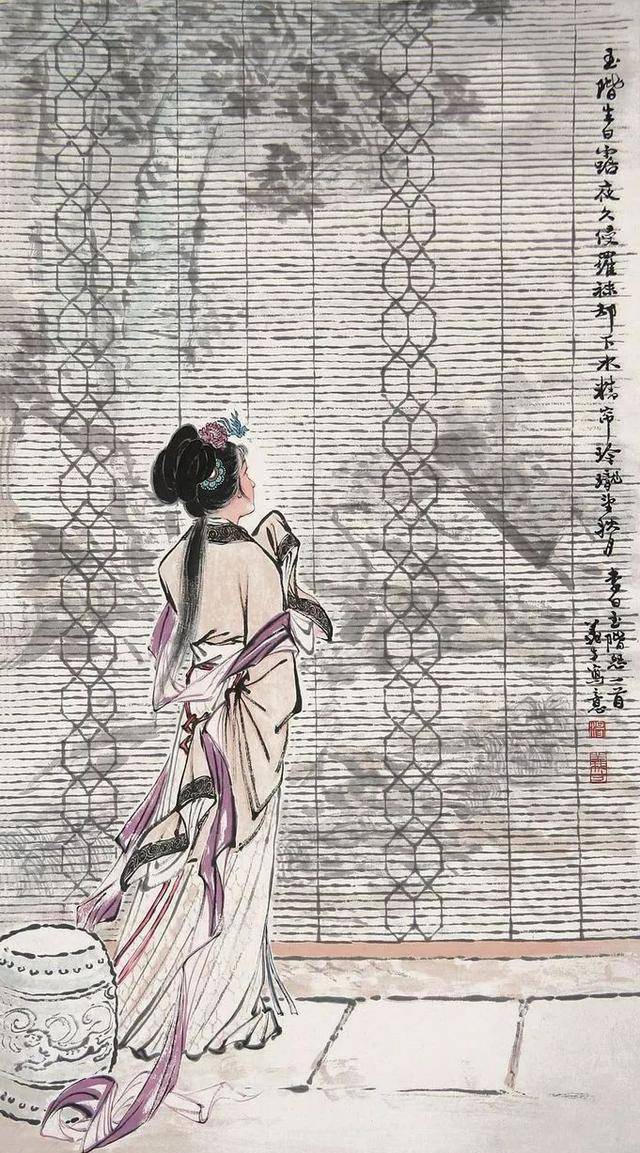 玉階生白露夜久侵羅襪却下水精帘玲瓏望秋月 李白玉階怨一首
義生寫意